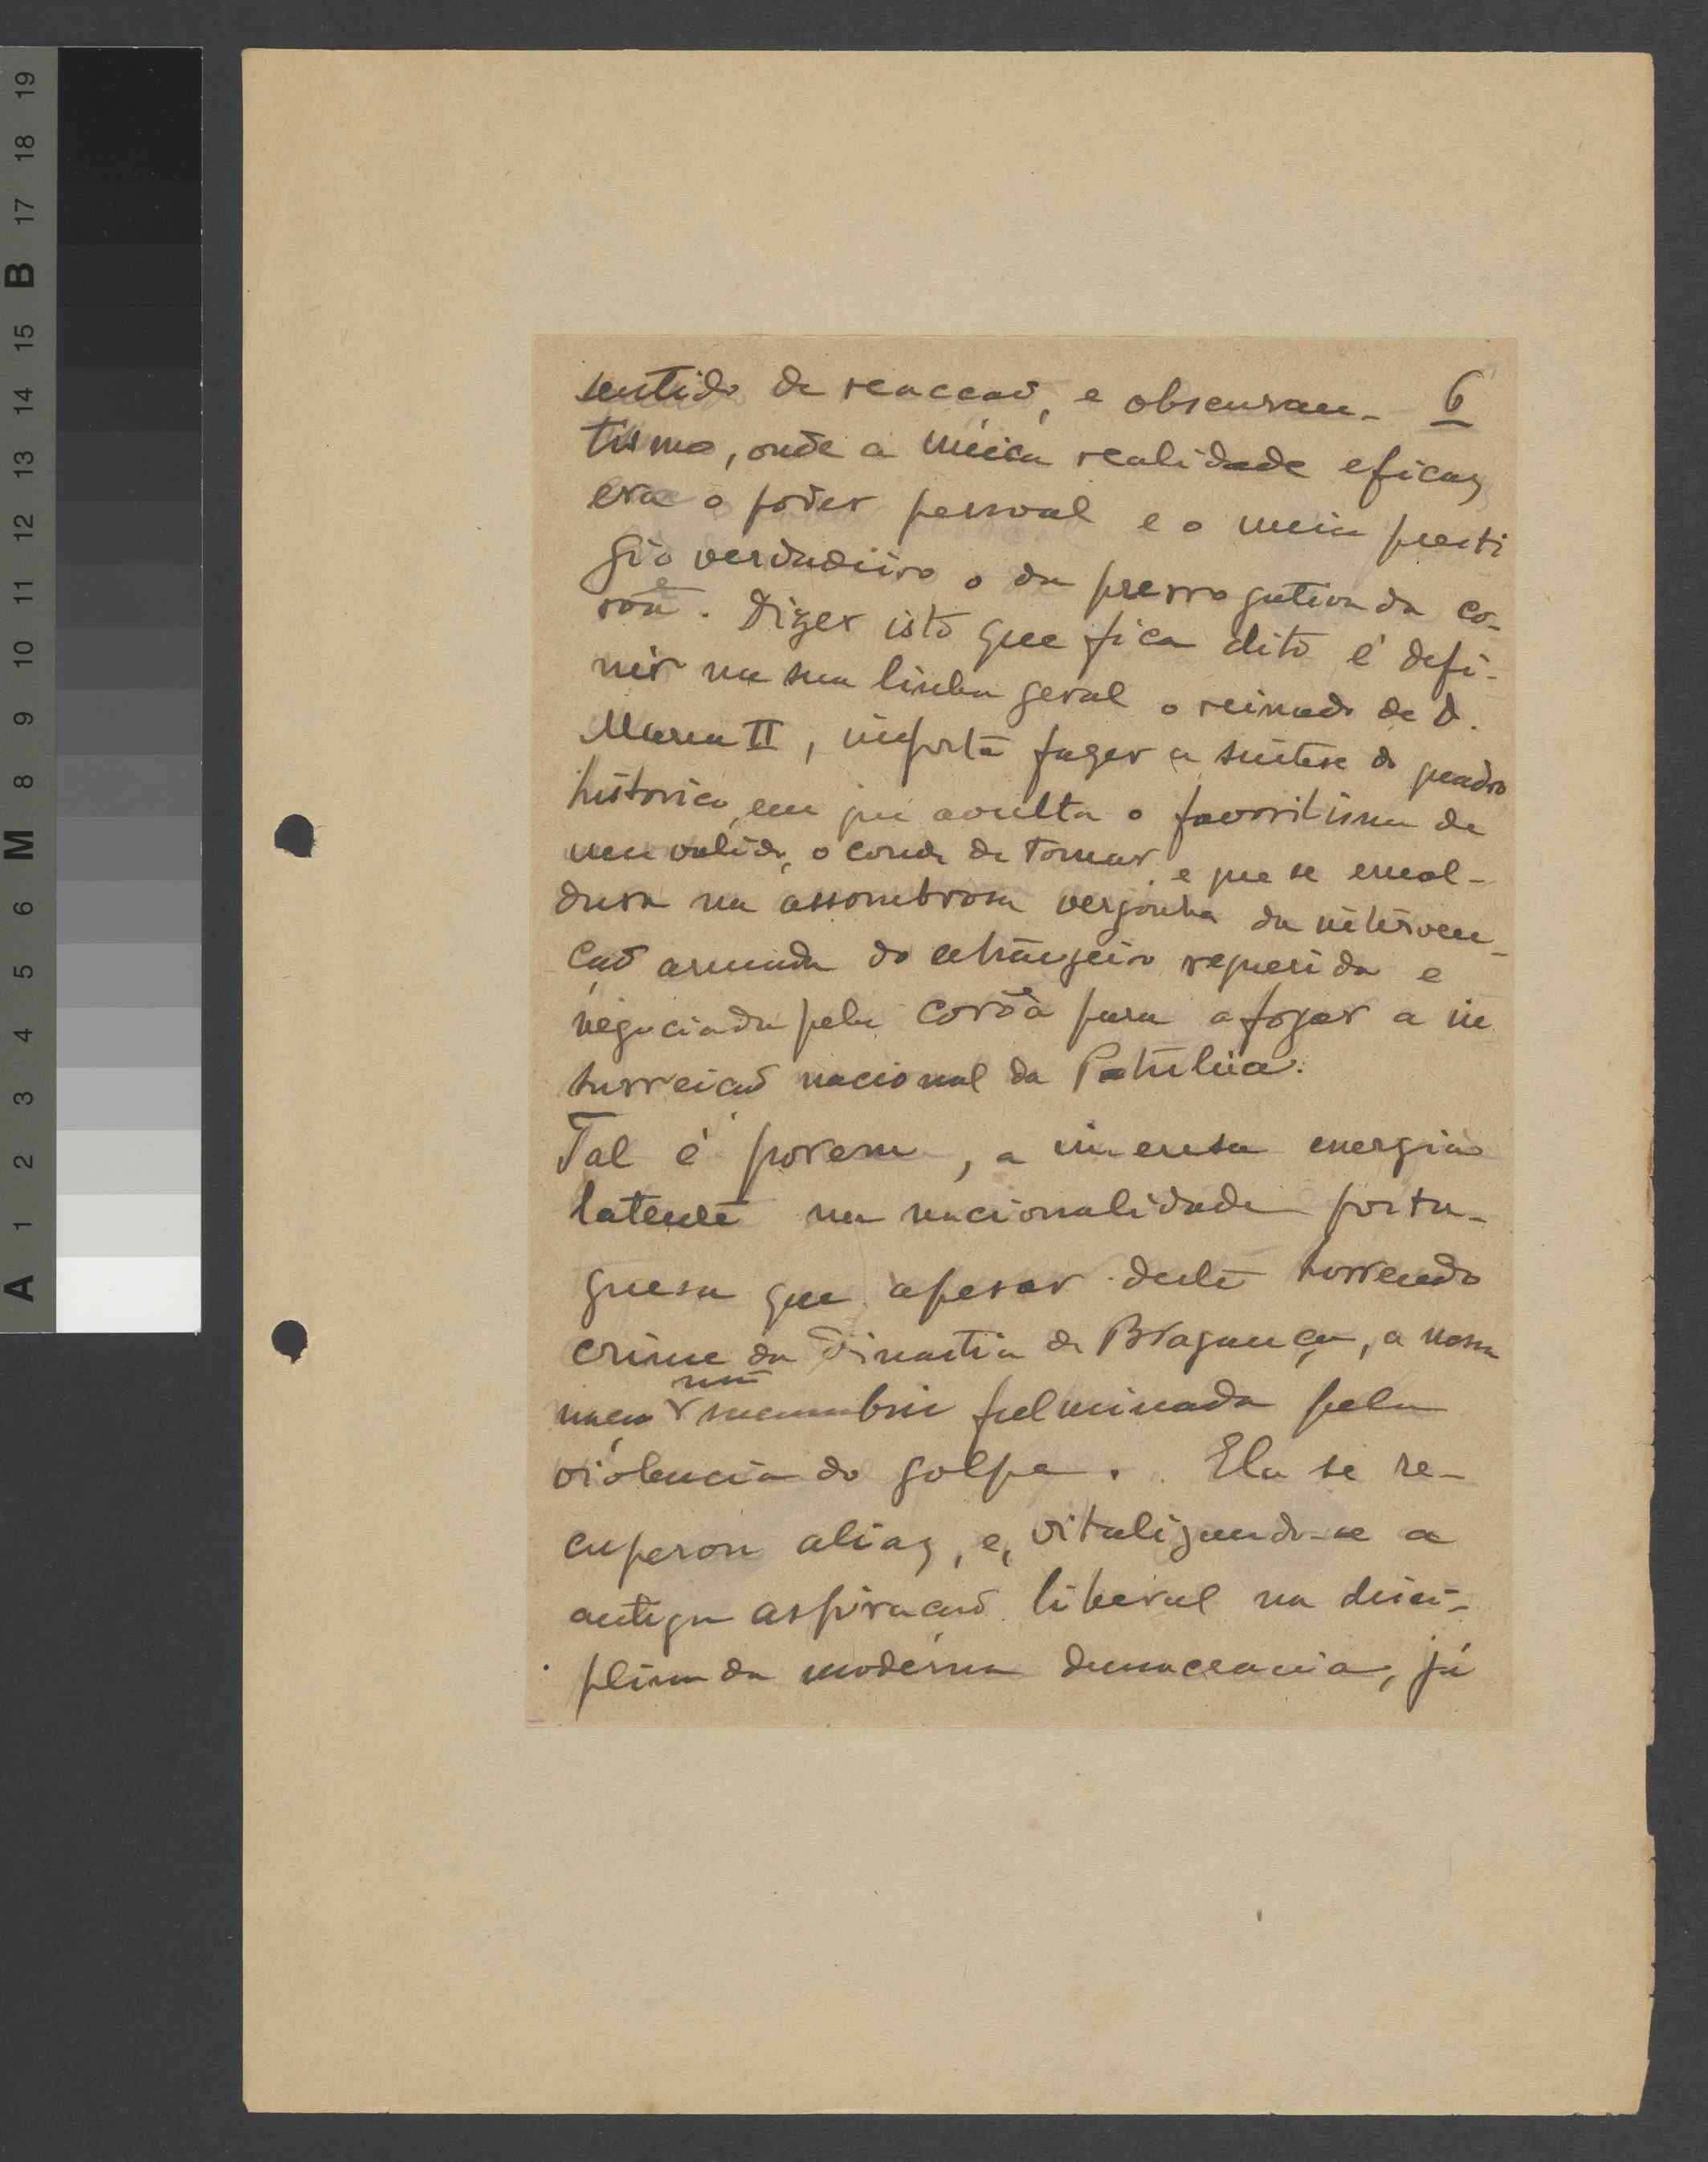 sentido de reacção, e obscuran- 6
tismo, onde a única realidade eficaz
era o poder pessoal e o unico presti
gio verdadeiro o da prerrogativa da co-
rôa. Dizer isto que fica dito é defi-
nir na sua linha geral o reinado de D.
Maria II, importa fazer a síntese do quadro
histórico, em que avulta o favoritismo de
um valido, o conde de Tomar, e que se emol-
dura na assombrosa vergonha da interven-
ção armada do estrangeiro requerida e
negociada pela corôa para afogar a in
surreição nacional da Patuleia.
Tal é porem, a imensa energia
latente na nacionalidade portu-
guesa que apesar deste horrendo
crime da dinastia de Bragança, a nossa
nação não sucumbiu fulminada pela
violencia do golpe. Ela se re-
cuperou aliaz, e, vitalizando-se a
antiga aspiração liberal na disci-
plina da moderna democracia, já
A 1 2 3 4 5 6 M 8 9 10 11 12 13 14 15 B 17 18 19